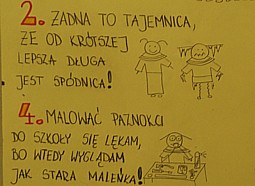 2. ŻADNA TO TAJEMNICA,
ŻE OD KRÓTSZEJ
LEPSZA DŁUGA
JEST SPÓDNICA!
4. MALOWAĆ PAZNOKCI
DO SZKOŁY SIĘ LĘKAM,
BO WTEDY WYGLĄDAM
JAK STARA MALEŃKA!